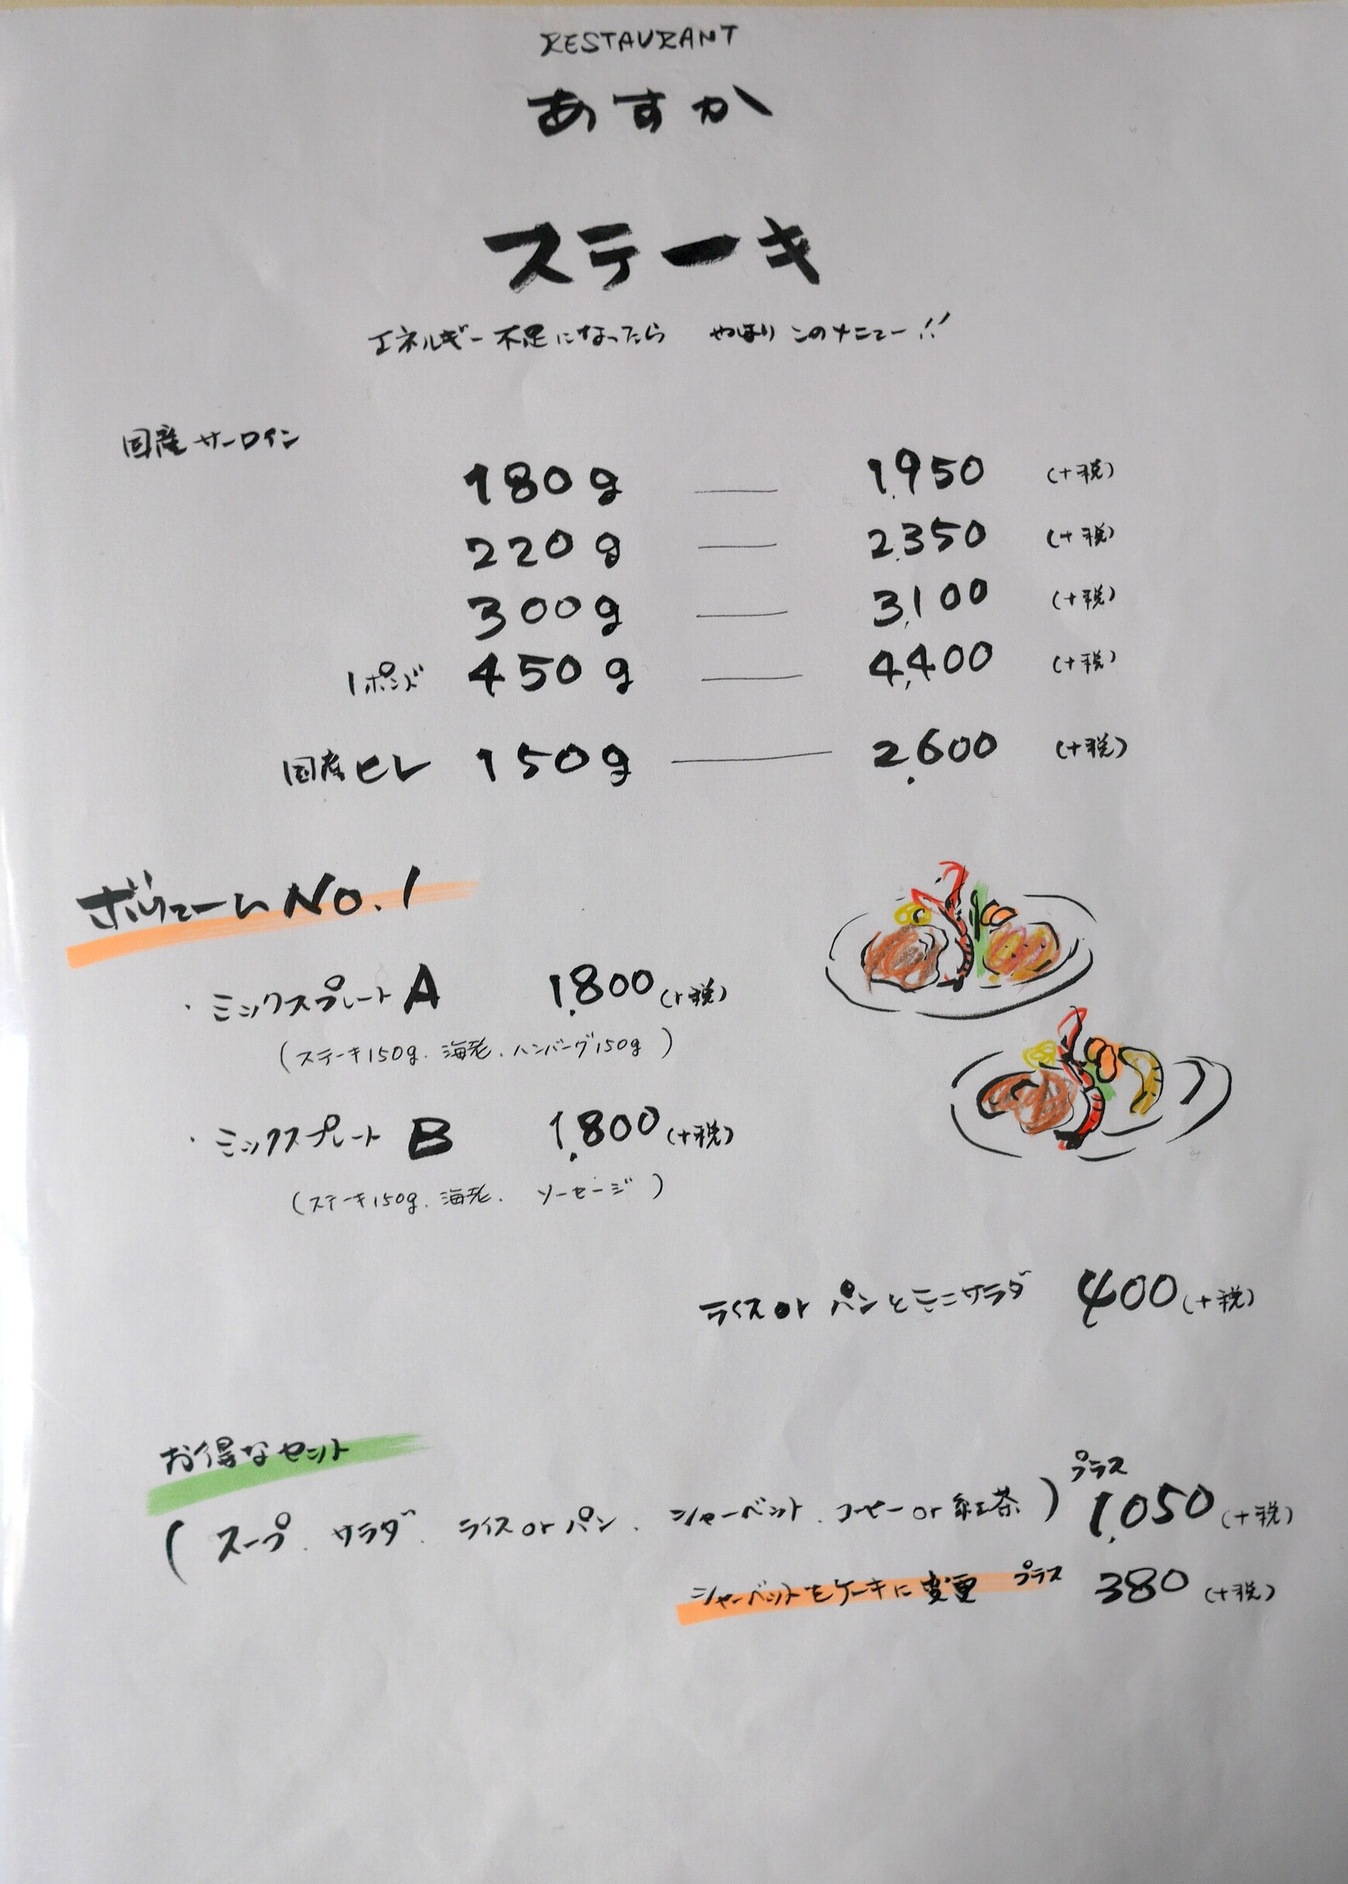 RESTAURANT
あすか
ステーキ
エネルギー不足になったら やはり このメニュー!!
国産サーロイン
180g 1,950 (+税)
220g 2,350 (+税)
300g 3,100 (+税)
1ポンド 450g 4,400 (+税)
国産ヒレ 150g 2,600 (+税)
ボリューム No.1
・ミックスプレート A 1,800 (+税)
(ステーキ150g、海老、ハンバーグ150g)
・ミックスプレート B 1,800 (+税)
(ステーキ150g、海老、ソーセージ)
ライス or パンとミニサラダ 400 (+税)
お得なセット
(スープ、サラダ、ライス or パン、シャーベット、コーヒー or 紅茶) プラス 1,050 (+税)
シャーベットをケーキに変更 プラス 380 (+税)